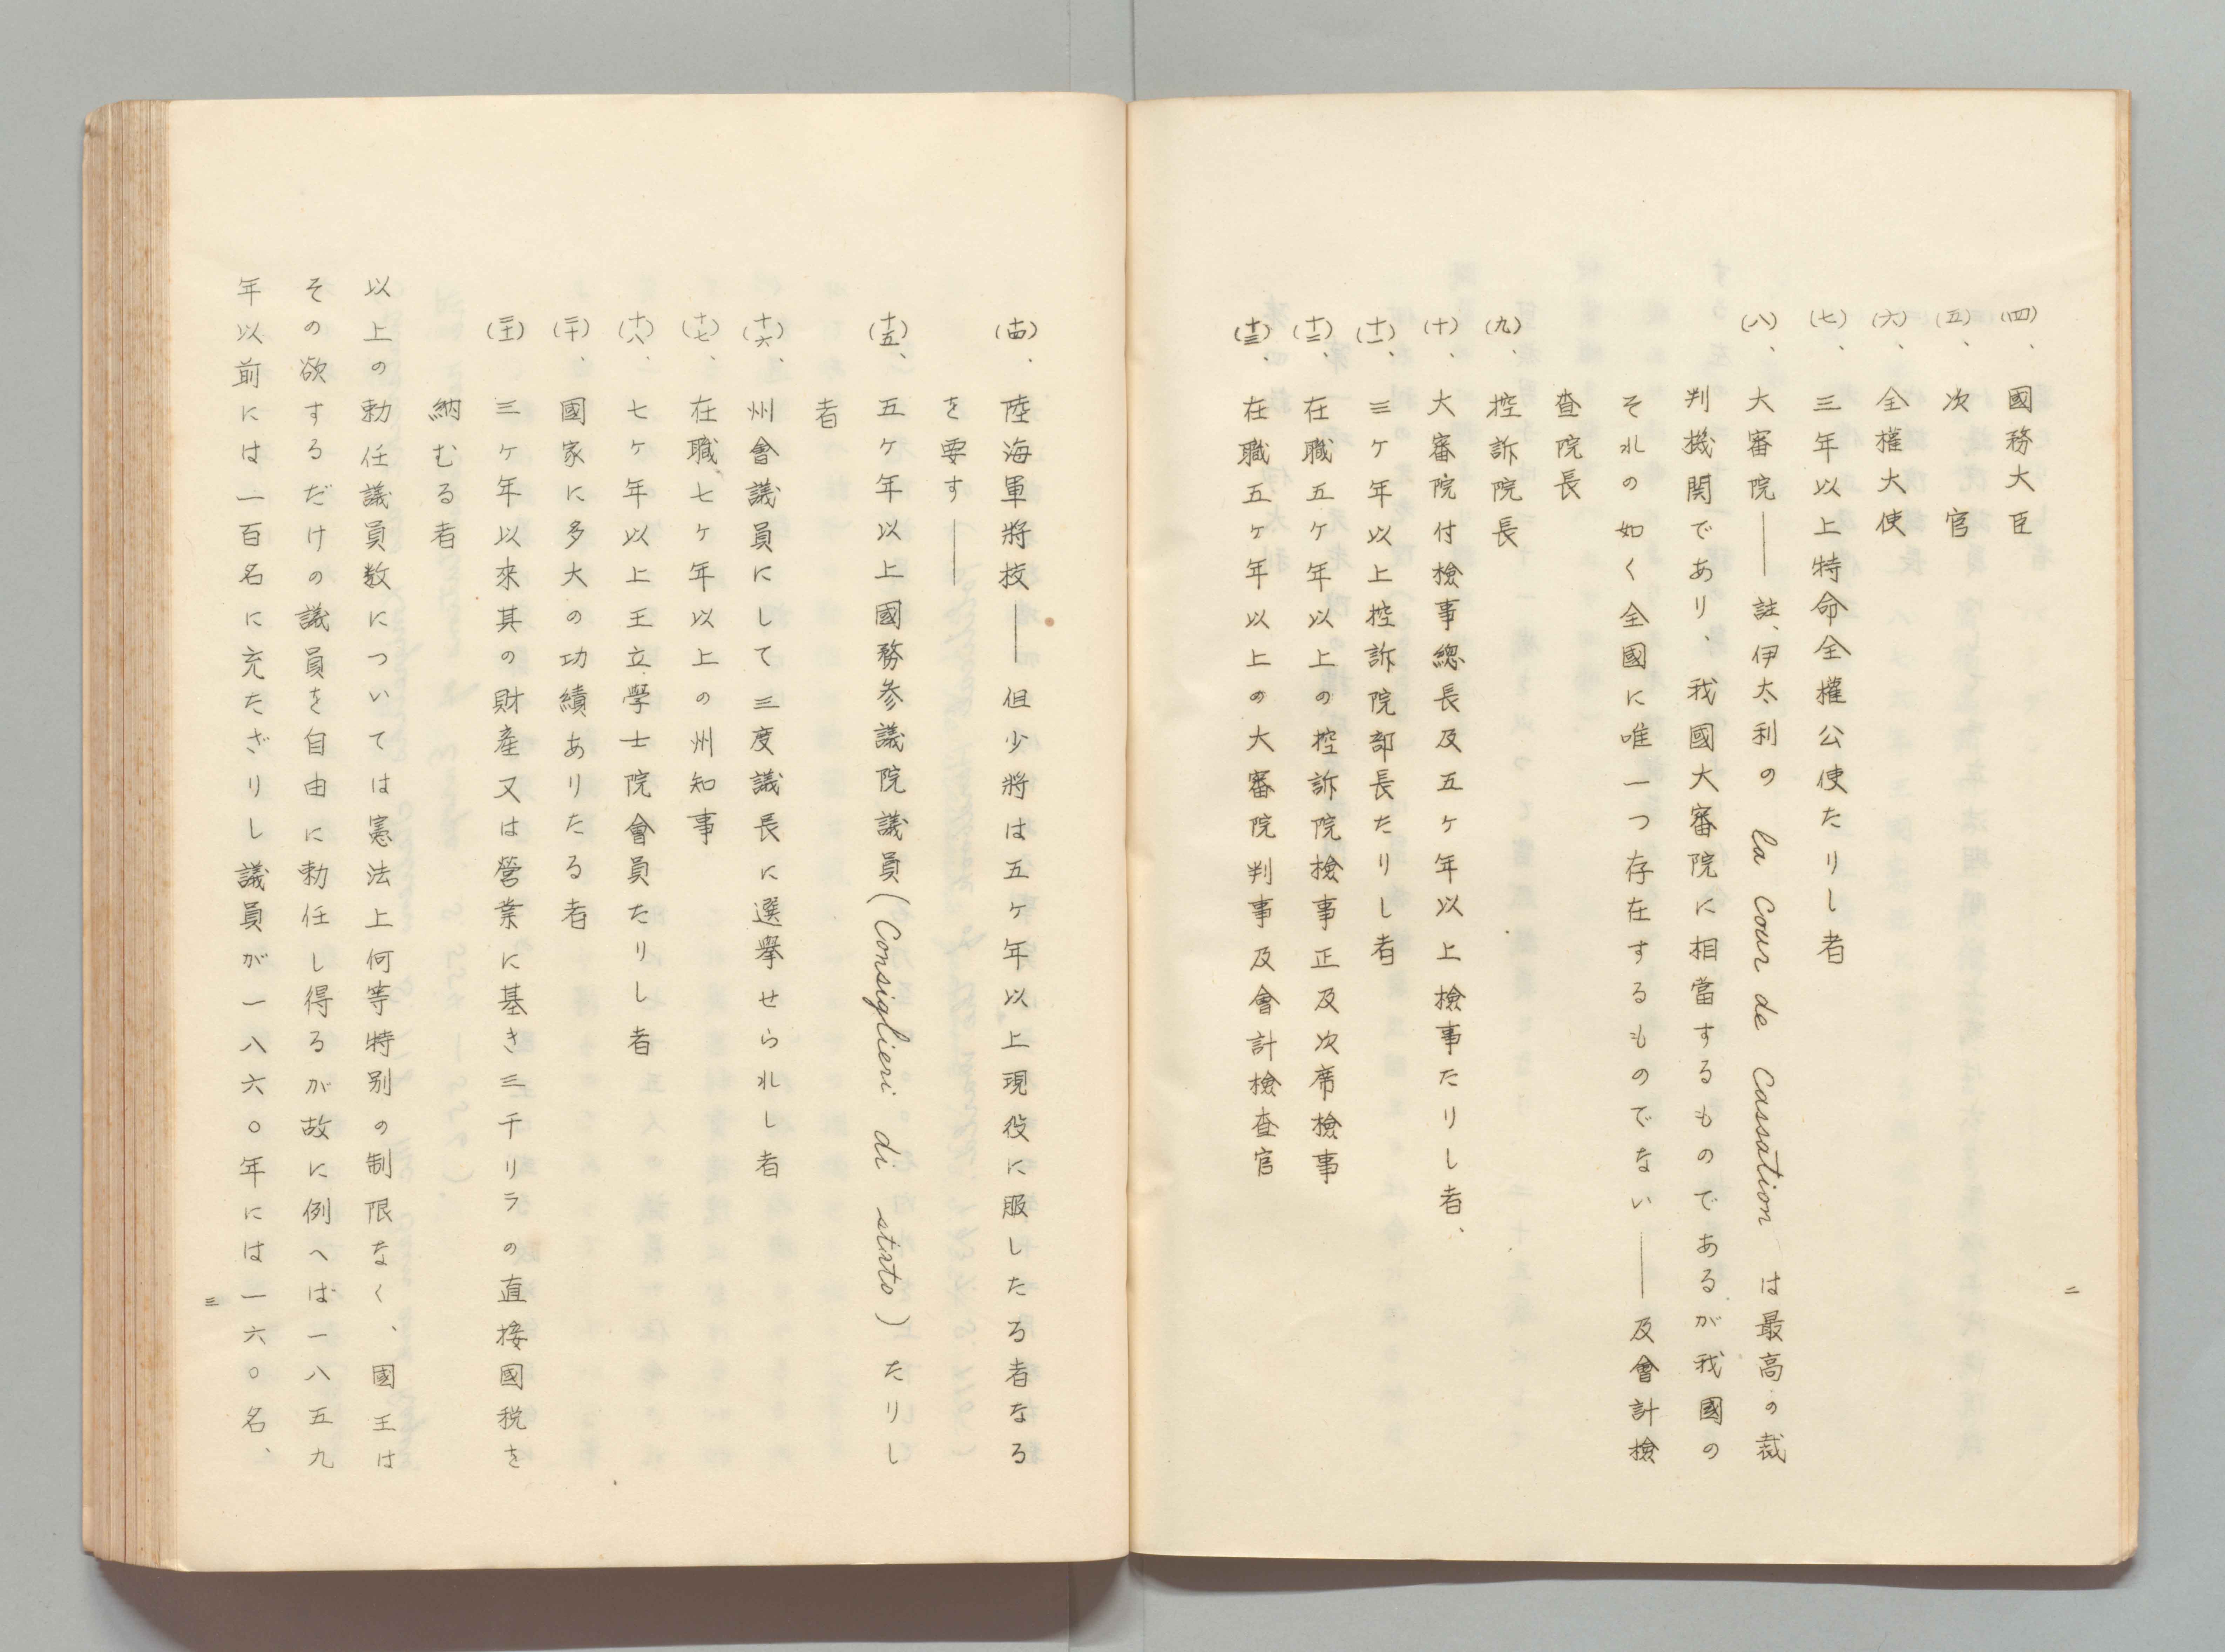 (四)、國務大臣
(五)、次官
(六)、全權大使
(七)、三年以上特命全權公使たりし者
(八)、大審院――註、伊太利の la Cour de Cassation は最高の裁
判機関であり、我國大審院に相當するものであるが我國の
それの如く全國に唯一つ存在するものでない――及會計檢
査院長
(九)、控訴院長
(十)、大審院付檢事總長及五ヶ年以上檢事たりし者、
(十一)、三ヶ年以上控訴院部長たりし者
(十二)、在職五ヶ年以上の控訴院檢事正及次席檢事
(十三)、在職五ヶ年以上の大審院判事及會計檢査官
二
(十四)、陸海軍將校――但少將は五ヶ年以上現役に服したる者なる
を要す――
(十五)、五ヶ年以上國務参議院議員(Consiglieri di stato)たりし
者
(十六)、州會議員にして三度議長に選擧せられし者
(十七)、在職七ヶ年以上の州知事
(十八)、七ヶ年以上王立學士院會員たりし者
(二十)、國家に多大の功績ありたる者
(二十一)三ヶ年以來其の財産又は營業に基き三千リラの直接國税を
納むる者
以上の勅任議員数については憲法上何等特別の制限なく、國王は
その欲するだけの議員を自由に勅任し得るが故に例へは一八五九
年以前には一百名に充たざりし議員が一八六〇年には一六〇名、
三